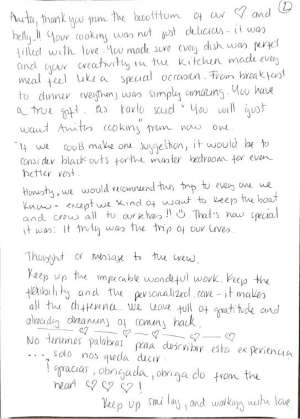 2
Anita, thank you from the bottom of our ♡ and
belly!! Your cooking was not just delicious - it was
filled with love. You made sure every dish was perfect
and your creativity in the kitchen made every
meal feel like a special occasion. From breakfast
to dinner everything was simply amazing. You have
a true gift. as Karlo said "You will just
want Anitas cooking" from now one.
If we could make one suggestion, it would be to
consider blackouts for the master bedroom for even
better rest.
Honestly, we would recommend this trip to every one we
know - except we kind of want to keep the boat
and crew all to ourselves!! ☺ That's how special
it was. It truly was the trip of our lives.
Thought or message to the crew.
Keep up the impecable wonderful work. Keep the
flexibility and the personalized care - it makes
all the difference. We leave full of gratitude and
already dreaming of coming back.
No tenemos palabras para describir esta experiencia
... solo nos queda decir
¡ gracias, obrigada, obrigado from the
heart ♡ ♡ ♡ !
Keep up smiling, and working with love